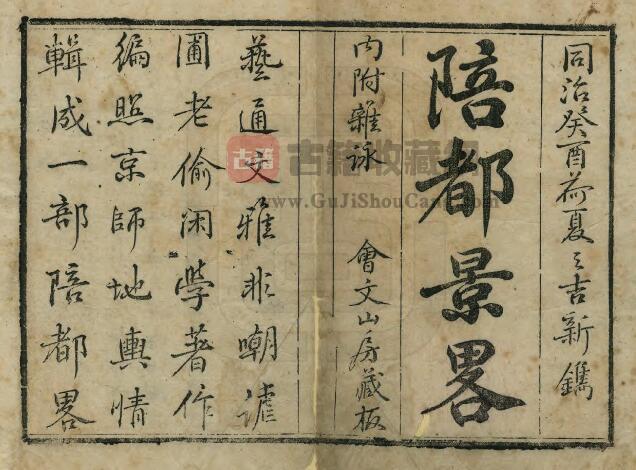 同治癸酉荷夏之吉新鐫
陪都景畧
內附雜咏　會文山房藏板
藝通文雅非嘲謔
圃老偷闲學著作
編照京師地輿情
輯成一部陪都畧
古籍 古籍收藏
www.GuJiShouCang.com